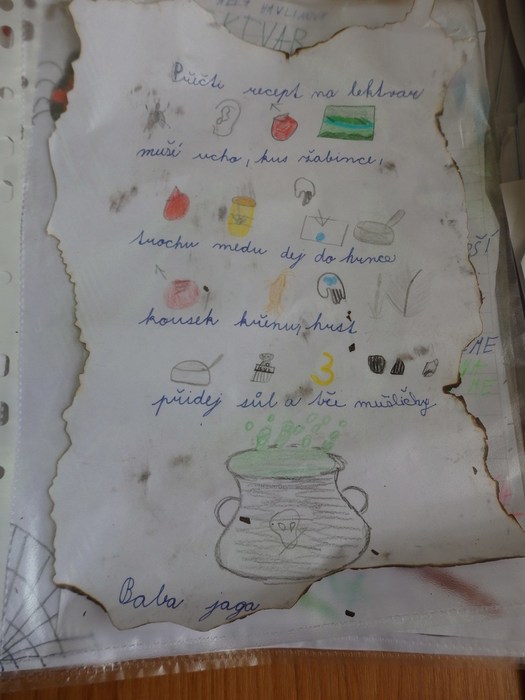 KTVAR
Přečti recept na lektvar
muší ucho, kus žabince,
trochu medu dej do hrnce
kousek křenu, hrst
přidej sůl a tři mušličky
Baba jaga